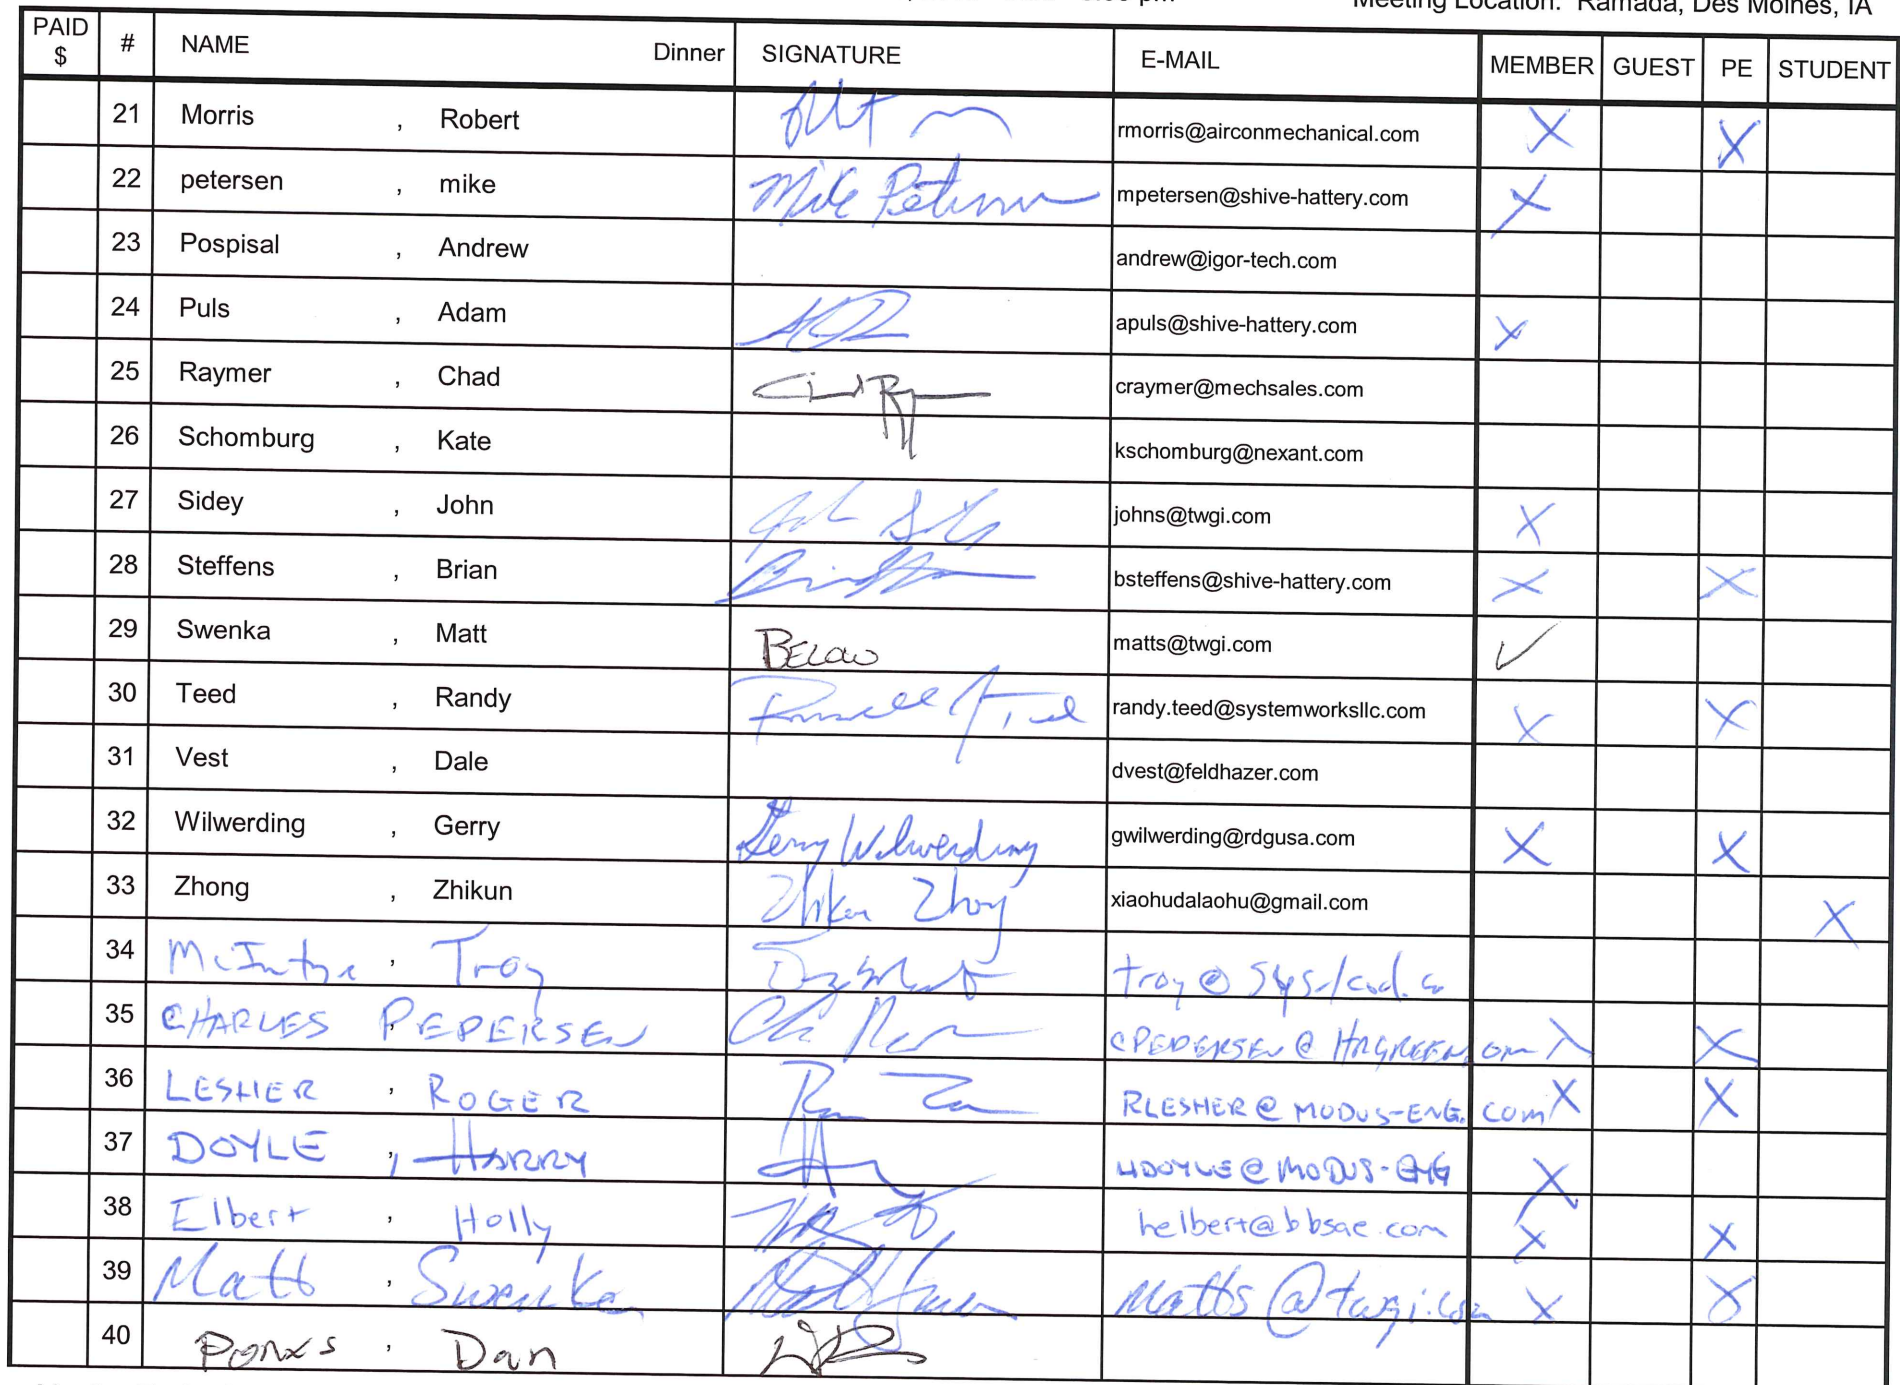 Meeting Location: Ramada, Des Moines, IA
PAID $ # NAME Dinner SIGNATURE E-MAIL MEMBER GUEST PE STUDENT
21 Morris , Robert rmorris@airconmechanical.com X X
22 petersen , mike Mike Petersen mpetersen@shive-hattery.com X
23 Pospisal , Andrew andrew@igor-tech.com
24 Puls , Adam apuls@shive-hattery.com X
25 Raymer , Chad craymer@mechsales.com
26 Schomburg , Kate kschomburg@nexant.com
27 Sidey , John johns@twgi.com X
28 Steffens , Brian bsteffens@shive-hattery.com X X
29 Swenka , Matt BELOW matts@twgi.com ✓
30 Teed , Randy randy.teed@systemworksllc.com X X
31 Vest , Dale dvest@feldhazer.com
32 Wilwerding , Gerry Gerry Wilwerding gwilwerding@rdgusa.com X X
33 Zhong , Zhikun Zhikun Zhong xiaohudalaohu@gmail.com X
34 McIntyre , Troy
35 CHARLES PEDERSEN CPEDERSEN@HRGREEN.com X X
36 LESHER , ROGER RLESHER@MODUS-ENG.com X X
37 DOYLE , HARRY HDOYLE@MODUS-ENG X
38 Elbert , Holly helbert@bbsae.com X X
39 Matt , Swenka Matts@twgi.com X X
40 , Dan